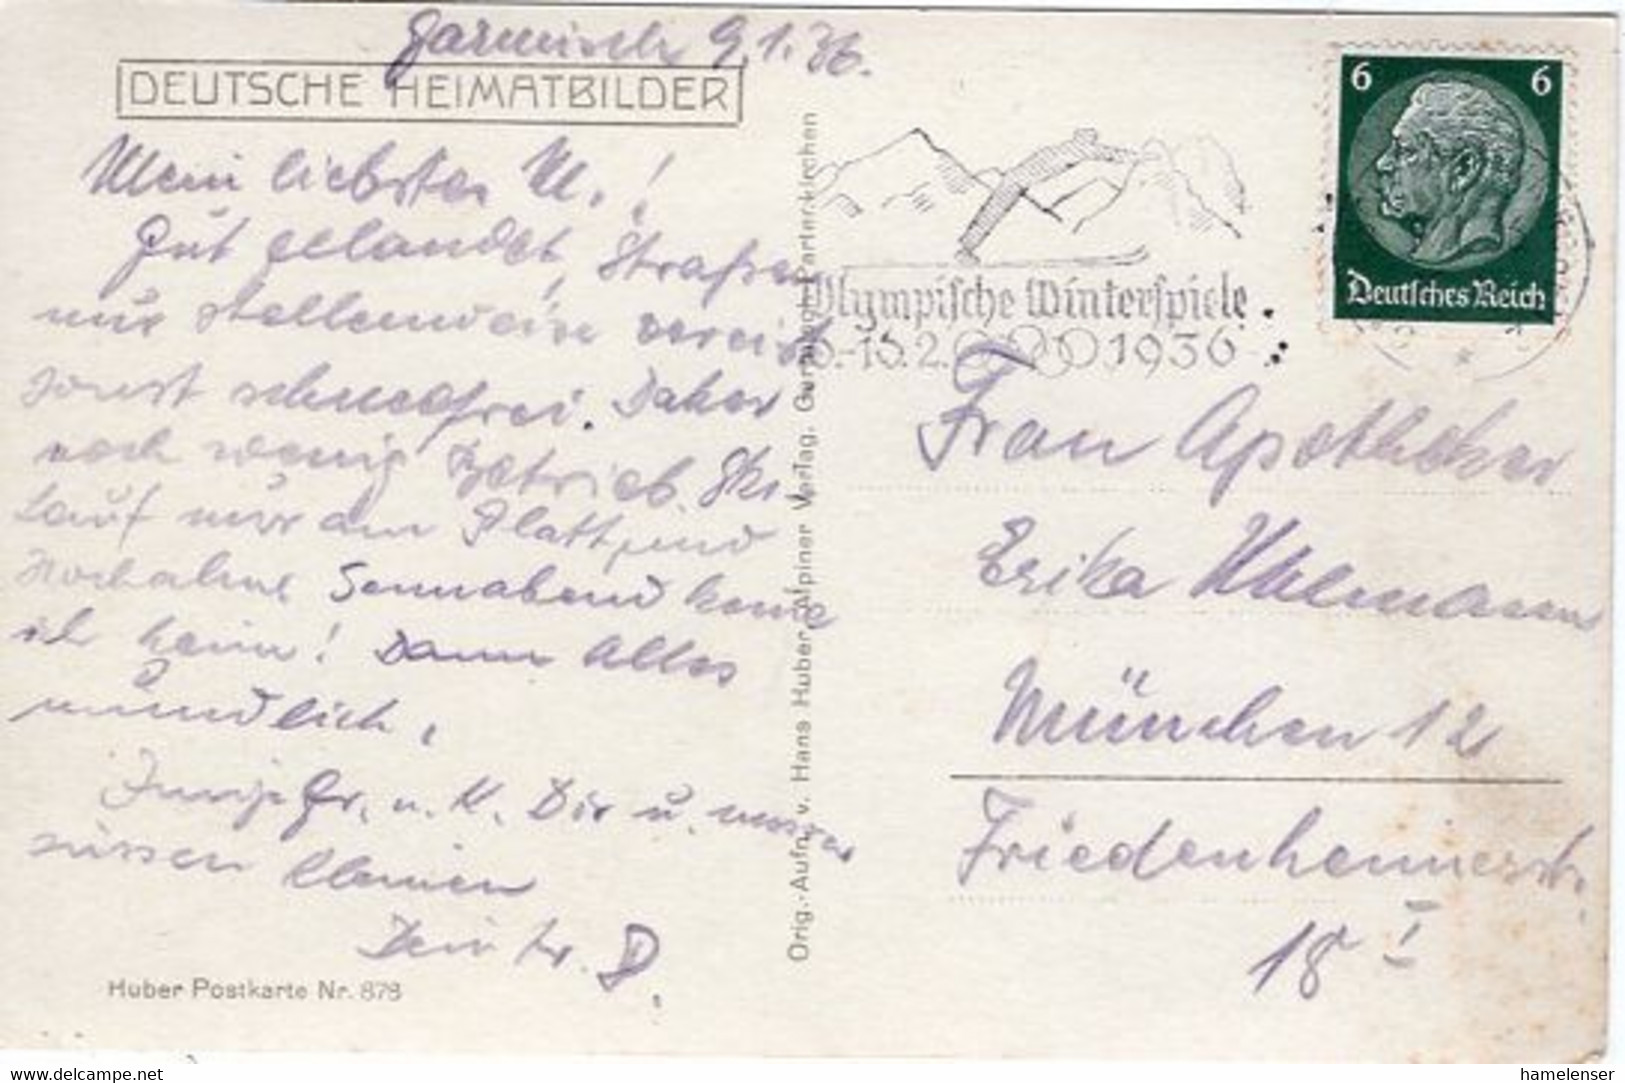 Garmisch 9.1.36.
DEUTSCHE HEIMATBILDER
Mein liebster M.!
Gut gelandet, Strassen
nur stellenweise vereist
sonst schneefrei. Daher
noch wenig Betrieb. Ski
lauf nur am Platt und
Hochalm. Sonnabend komme
ich heim! Dann Alles
mündlich.
Gr. u. K. Dir u. unserer
süssen kleinen
Dein tr. D.
Huber Postkarte Nr. 878
Orig.-Aufn. v. Hans Huber, Alpiner Verlag, Garmisch-Partenkirchen
Olympische Winterspiele
6.-16.2. 1936
6 6
Deutsches Reich
Frau Apotheker
Erika
München 12
Friedenheimerstr.
18 I
delcampe.net
hamelenser